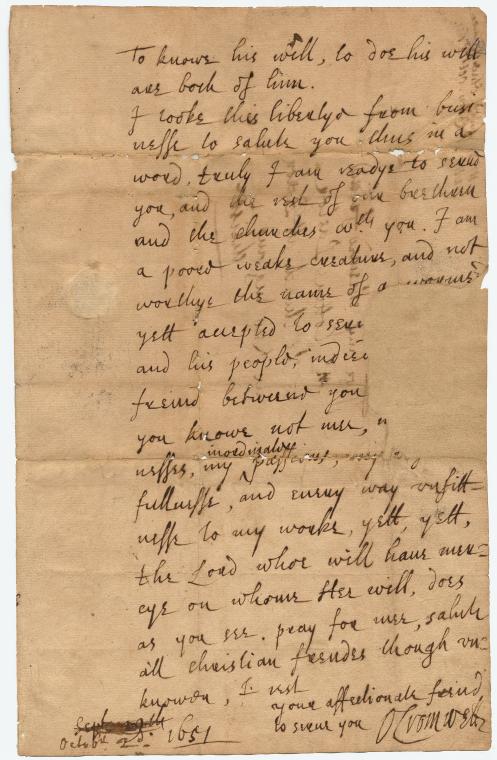 To knowe his will, to doe his will
are both of him.
I tooke this libertye from busi
nesse to salute you thus in a
word, truly I am readye to serve
you, and the rest of our brethren
and the churches wth you. I am
a poore weake creature, and not
worthye the name of a worme
yett accepted to serve
and his people, indeed
freind betweene you
you knowe not mee,
nesses, my inordinate passions, my
fullnesse, and every way unfitt-
nesse to my worke, yett, yett,
the Lord whoe will have mer-
cye on whome Hee will, does
as you see. pray for mee, salute
all christian freindes though un-
knowen, I rest
your affectionate freind
to serve you O Cromwell
Octobr 2d. 1651